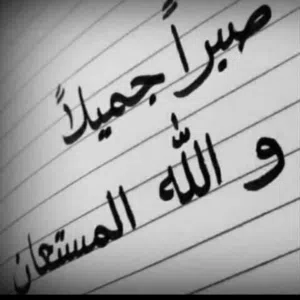 صبراً جميلاً
و الله المستعان